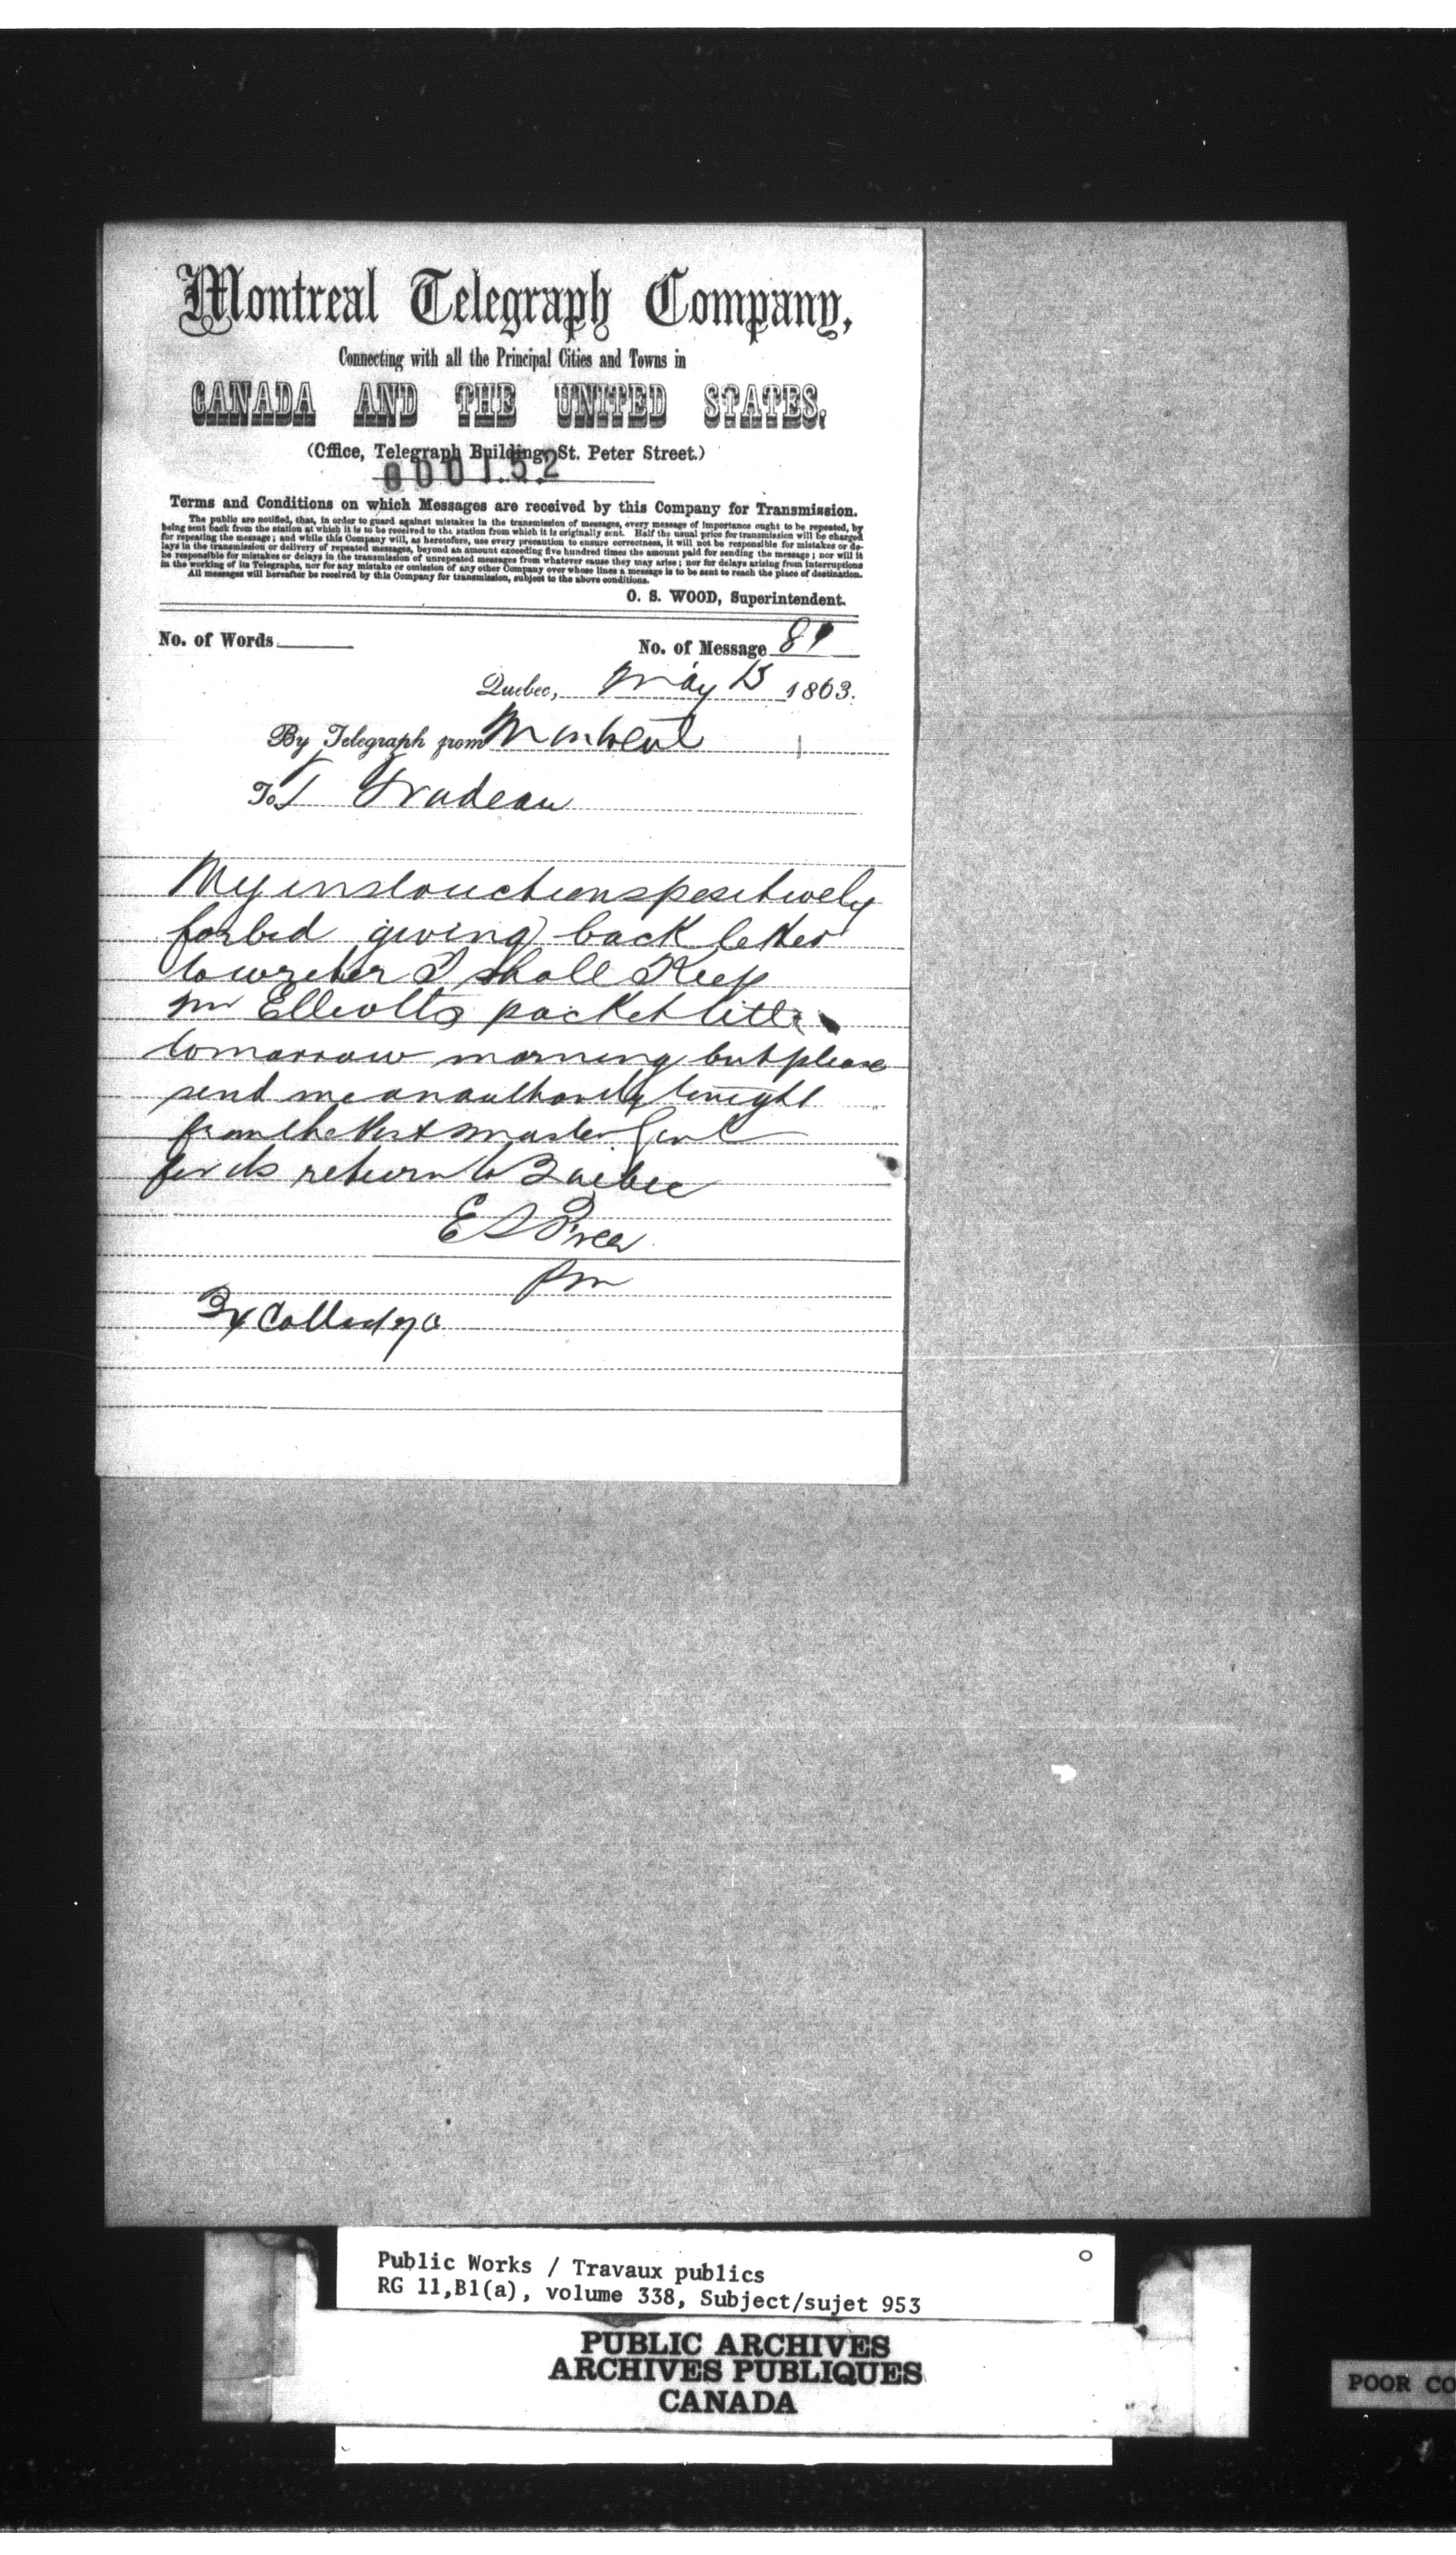 Montreal Telegraph Company,
Connecting with all the Principal Cities and Towns in
CANADA AND THE UNITED STATES.
(Office, Telegraph Building, St. Peter Street.)
000152
Terms and Conditions on which Messages are received by this Company for Transmission.
The public are notified, that, in order to guard against mistakes in the transmission of messages, every message of importance ought to be repeated, by
being sent back from the station at which it is to be received to the station from which it is originally sent. Half the usual price for transmission will be charged
for repeating the message; and while this Company will, as heretofore, use every precaution to ensure correctness, it will not be responsible for mistakes or de-
lays in the transmission or delivery of repeated messages, beyond an amount exceeding five hundred times the amount paid for sending the message; nor will it
be responsible for mistakes or delays in the transmission of unrepeated messages from whatever cause they may arise; nor for delays arising from interruptions
in the working of its Telegraphs, nor for any mistake or omission of any other Company over whose lines a message is to be sent to reach the place of destination.
All messages will hereafter be received by this Company for transmission, subject to the above conditions.
O. S. WOOD, Superintendent.
No. of Words
No. of Message 89
Quebec, May 15 1863.
By Telegraph from Montreal
To T Trudeau
My instructions positively
forbid giving back letter
to writer I shall Keep
Mr Elliotts packet till
tomorrow morning but please
send me an authority tonight
from the Post master Genl
for its return to Quebec
E S Freer
Pm
Collect
Public Works / Travaux publics
RG 11,B1(a), volume 338, Subject/sujet 953
PUBLIC ARCHIVES
ARCHIVES PUBLIQUES
CANADA
POOR CO